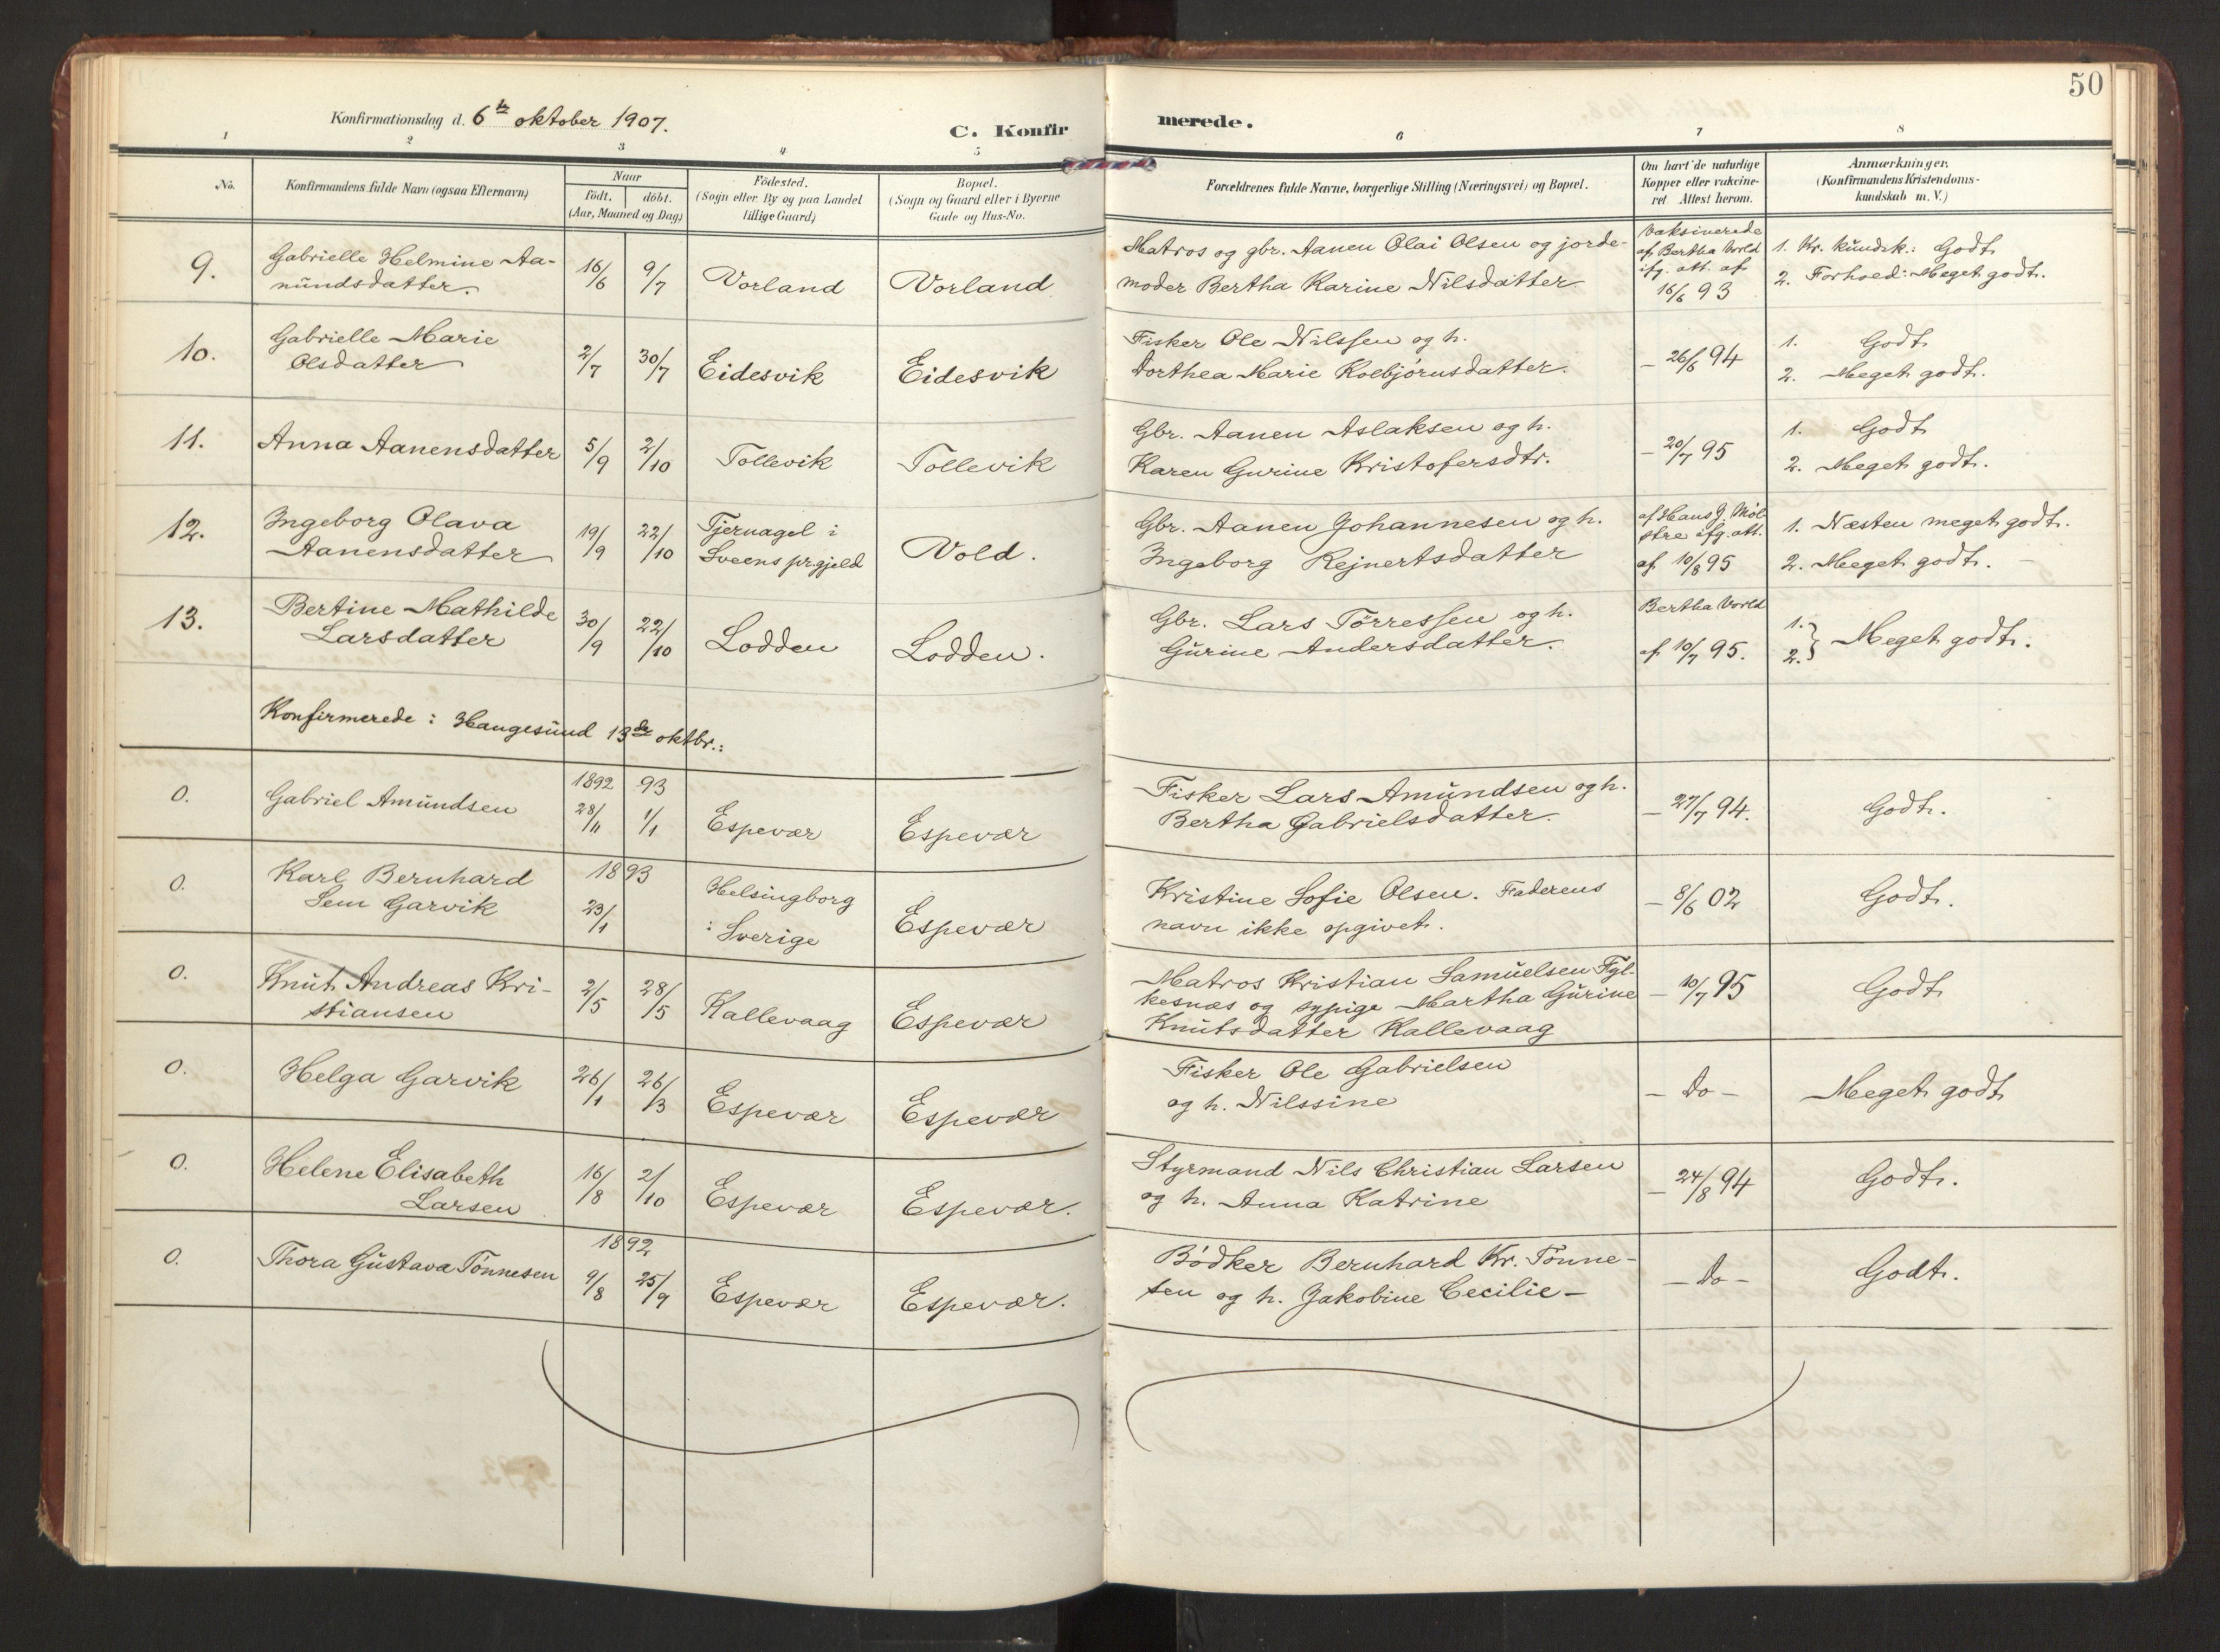 50
Konfirmationsdag d. 6te oktober 1907.
C. Konfirmerede.
1 2 3 4 5 6 7 8
No.
Konfirmandens fulde Navn (ogsaa Efternavn)
Naar
födt. döbt.
(Aar, Maaned og Dag)
Födested.
(Sogn eller By og paa Landet
tillige Gaard)
Bopæl.
(Sogn og Gaard eller i Byerne
Gade og Hus-No.
Forældrenes fulde Navne, borgerlige Stilling (Næringsvei) og Bopæl.
Om havt de naturlige
Kopper eller vakcine-
ret Attest herom.
Anmærkninger.
(Konfirmandens Kristendoms-
kundskab m. V.)
9.
Gabrielle Helmine Aa-
nundsdatter.
16/6
9/7
Vorland
Vorland
Matros og gbr. Aanen Olai Olsen og jorde-
moder Bertha Karine Nilsdatter
Vaksinerede
af Bertha Vorld
ifg. att. af
16/6 93
1. Kr. kundsk: Godt
2. Forhold: Meget godt.
10.
Gabrielle Marie
Olsdatter
2/7
30/7
Eidesvik
Eidesvik
Fisker Ole Nilssen og h.
Dorthea Marie Kolbjørnsdatter.
– 26/6 94
1. Godt
2. Meget godt.
11.
Anna Aanensdatter
5/9
2/10
Tollevik
Tollevik
Gbr. Aanen Aslaksen og h.
Karen Gurine Kristofersdtr.
– 20/7 95
1. Godt
2. Meget godt.
12.
Ingeborg Olava
Aanensdatter
19/9
22/10
Tjernagel i
Sveens pr.gjeld
Vold.
Gbr. Aanen Johannesen og h.
Ingeborg Rejnertsdatter
af Hans J. Møl-
stre ifg. att.
af 10/8 95
1. Næsten meget godt.
2. Meget godt. –
13.
Bertine Mathilde
Larsdatter
30/9
22/10
Lodden
Lodden.
Gbr. Lars Törressen og h.
Gurine Andersdatter.
Bertha Vorld
af 10/7 95.
1.
2. } Meget godt.
Konfirmerede i Haugesund 13de oktbr.:
0.
Gabriel Amundsen
1892
28/11
93
1/1
Espevær
Espevær
Fisker Lars Amundsen og h.
Bertha Gabrielsdatter.
– 27/7 94.
Godt.
0.
Karl Bernhard
Sem Garvik
1893
23/1
Helsingborg
i Sverige
Espevær
Kristine Sofie Olsen. Faderens
navn ikke opgivet.
– 8/6 02
Godt.
0.
Knut Andreas Kri-
stiansen
2/5
28/5
Kallevaag
Espevær
Matros Kristian Samuelsen Fyl-
kesnæs og sypige Martha Gurine
Knutsdatter Kallevaag
– 10/7 95
Godt
0.
Helga Garvik
26/1
26/3
Espevær
Espevær
Fisker Ole Gabrielsen
og h. Nilssine
– Do –
Meget godt
0.
Helene Elisabeth
Larsen
16/8
2/10
Espevær
Espevær.
Styrmand Nils Christian Larsen
og h. Anna Katrine
– 24/8 94
Godt.
0.
Thora Gustava Tönnesen
1892
9/8
25/9
Espevær
Espevær.
Bödker Bernhard Kr. Tönne-
sen og h. Jakobine Cecilie –
– Do –
Godt.